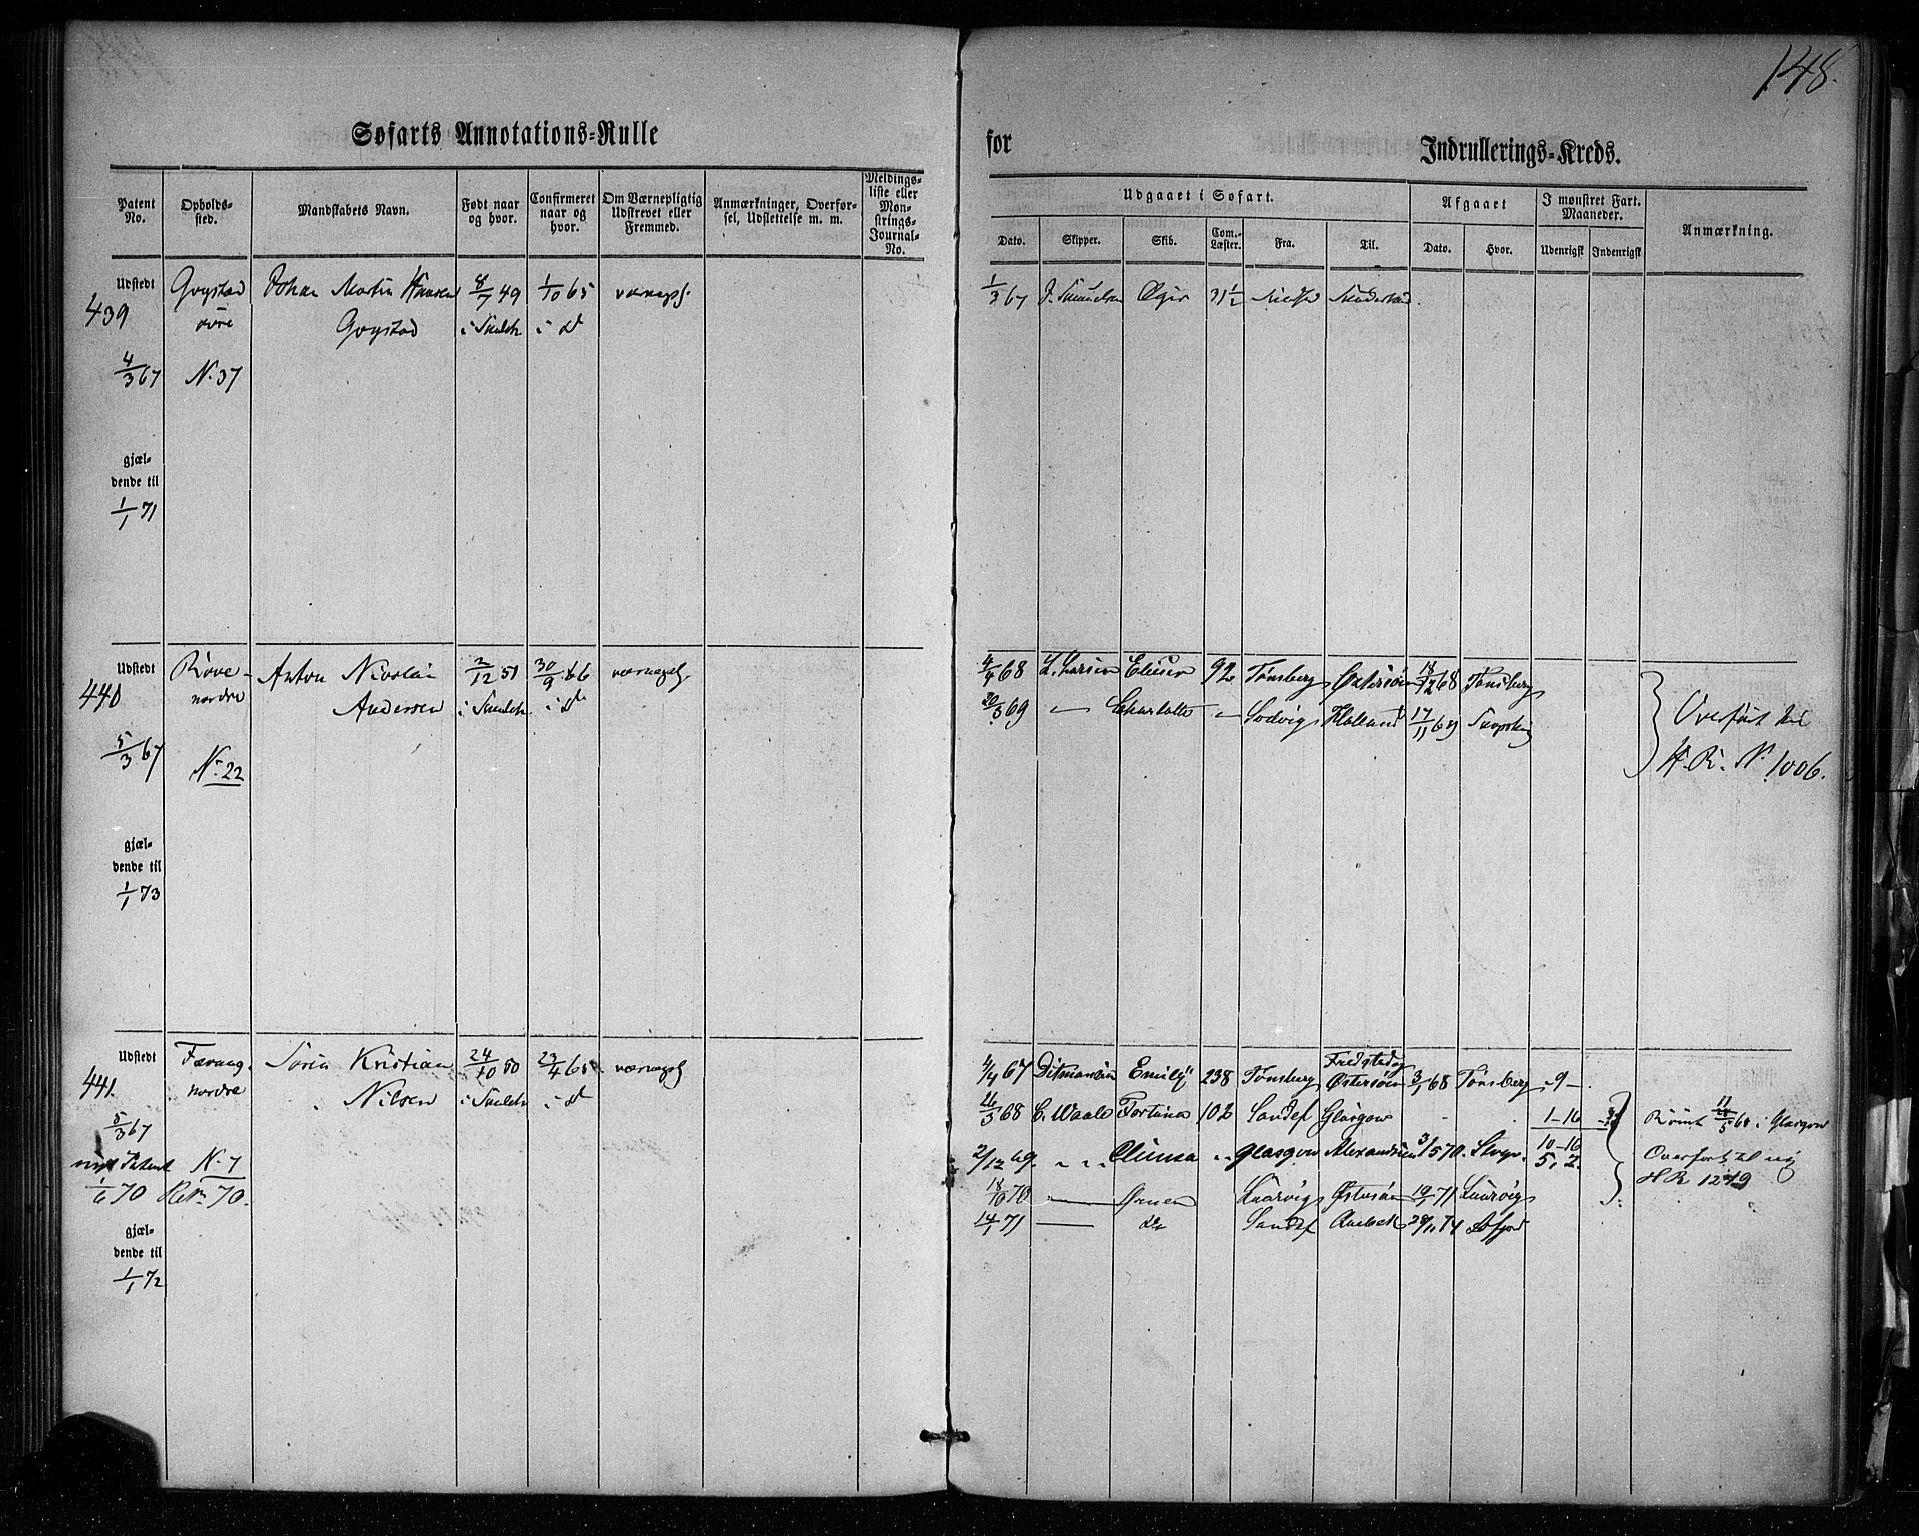 148.
Søfarts Annotations-Rulle
for
Indrullerings-Kreds.
Patent No.
Opholds-sted.
Mandskabets Navn.
Født naar og hvor.
Confirmeret naar og hvor.
Om Værnepligtig Udskrevet eller Fremmed.
Anmærkninger, Overfør-sel, Udslettelse m. m.
Meldings-liste eller Møn-strings-Journal-No.
Udgaaet i Søfart.
Afgaaet
I mønstret Fart. Maaneder.
Anmærkning.
Dato. Skipper. Skib. Com. Læster. Fra. Til. Dato. Hvor. Udenrigsk Indenrigsk
Udstedt Gogstad Johan Martin Hansen 8/7 49 1/10 65 værnepl. 1/3 67 J. Samuelsen Ægir 31 1/2
439 øvre Gogstad i Sandeh i do
4/3 67 N. 37
gjæl-
dende til
1/1 71
Udstedt Røve Anton Nicolai 2/12 51 30/9 66 værnepl. 4/4 68 L. Larsen 92 Tønsberg Østersøen 18/12 68 Tønsberg
440 nordre Andersen i Sandeh i do 20/3 69 — Charlotte — Holland 17/11 69 Overført til
5/3 67 N. 22 H. R. N. 1006.
gjæl-
dende til
1/1 73
Fredstedog
Udstedt Søren Kristian 24/10 50 23/4 65 værnepl 4/4 67 Ditmansen Emily 238 Tønsberg Østersøen 3/1 68 Tønsberg - 9 -
441. nordre Nilsen i Sandeh i do 26/3 68 C. Waale Fortuna 102 Sandef Glasgow - 1-16 Rømt 11/5 68 i Glasgow
5/3 67 2/12 69. " " " Glasgow Alexandria 3/5 70 10-16 Overført til ny
nyt Patent N. 7 5. 2. H R 1279
1/6 70 70. 18/10 70 — Ørnen Laurvig Østersøen 19/ 71 Laurvig
gjæl- 14/1 71 — do Sandef
dende til
1/1 72